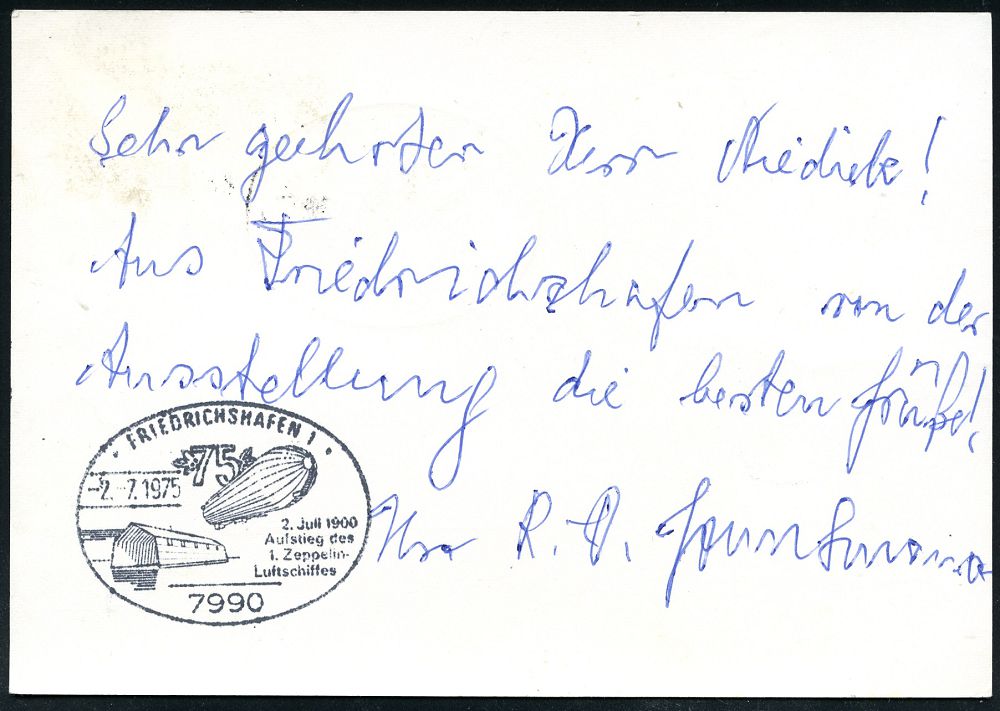 Sehr geehrter Herr
Aus Friedrichshafen von der
Ausstellung die besten Grüße!
Ihr R.
FRIEDRICHSHAFEN 1
75
-2.-7.1975
2. Juli 1900
Aufstieg des
1. Zeppelin-
Luftschiffes
7990